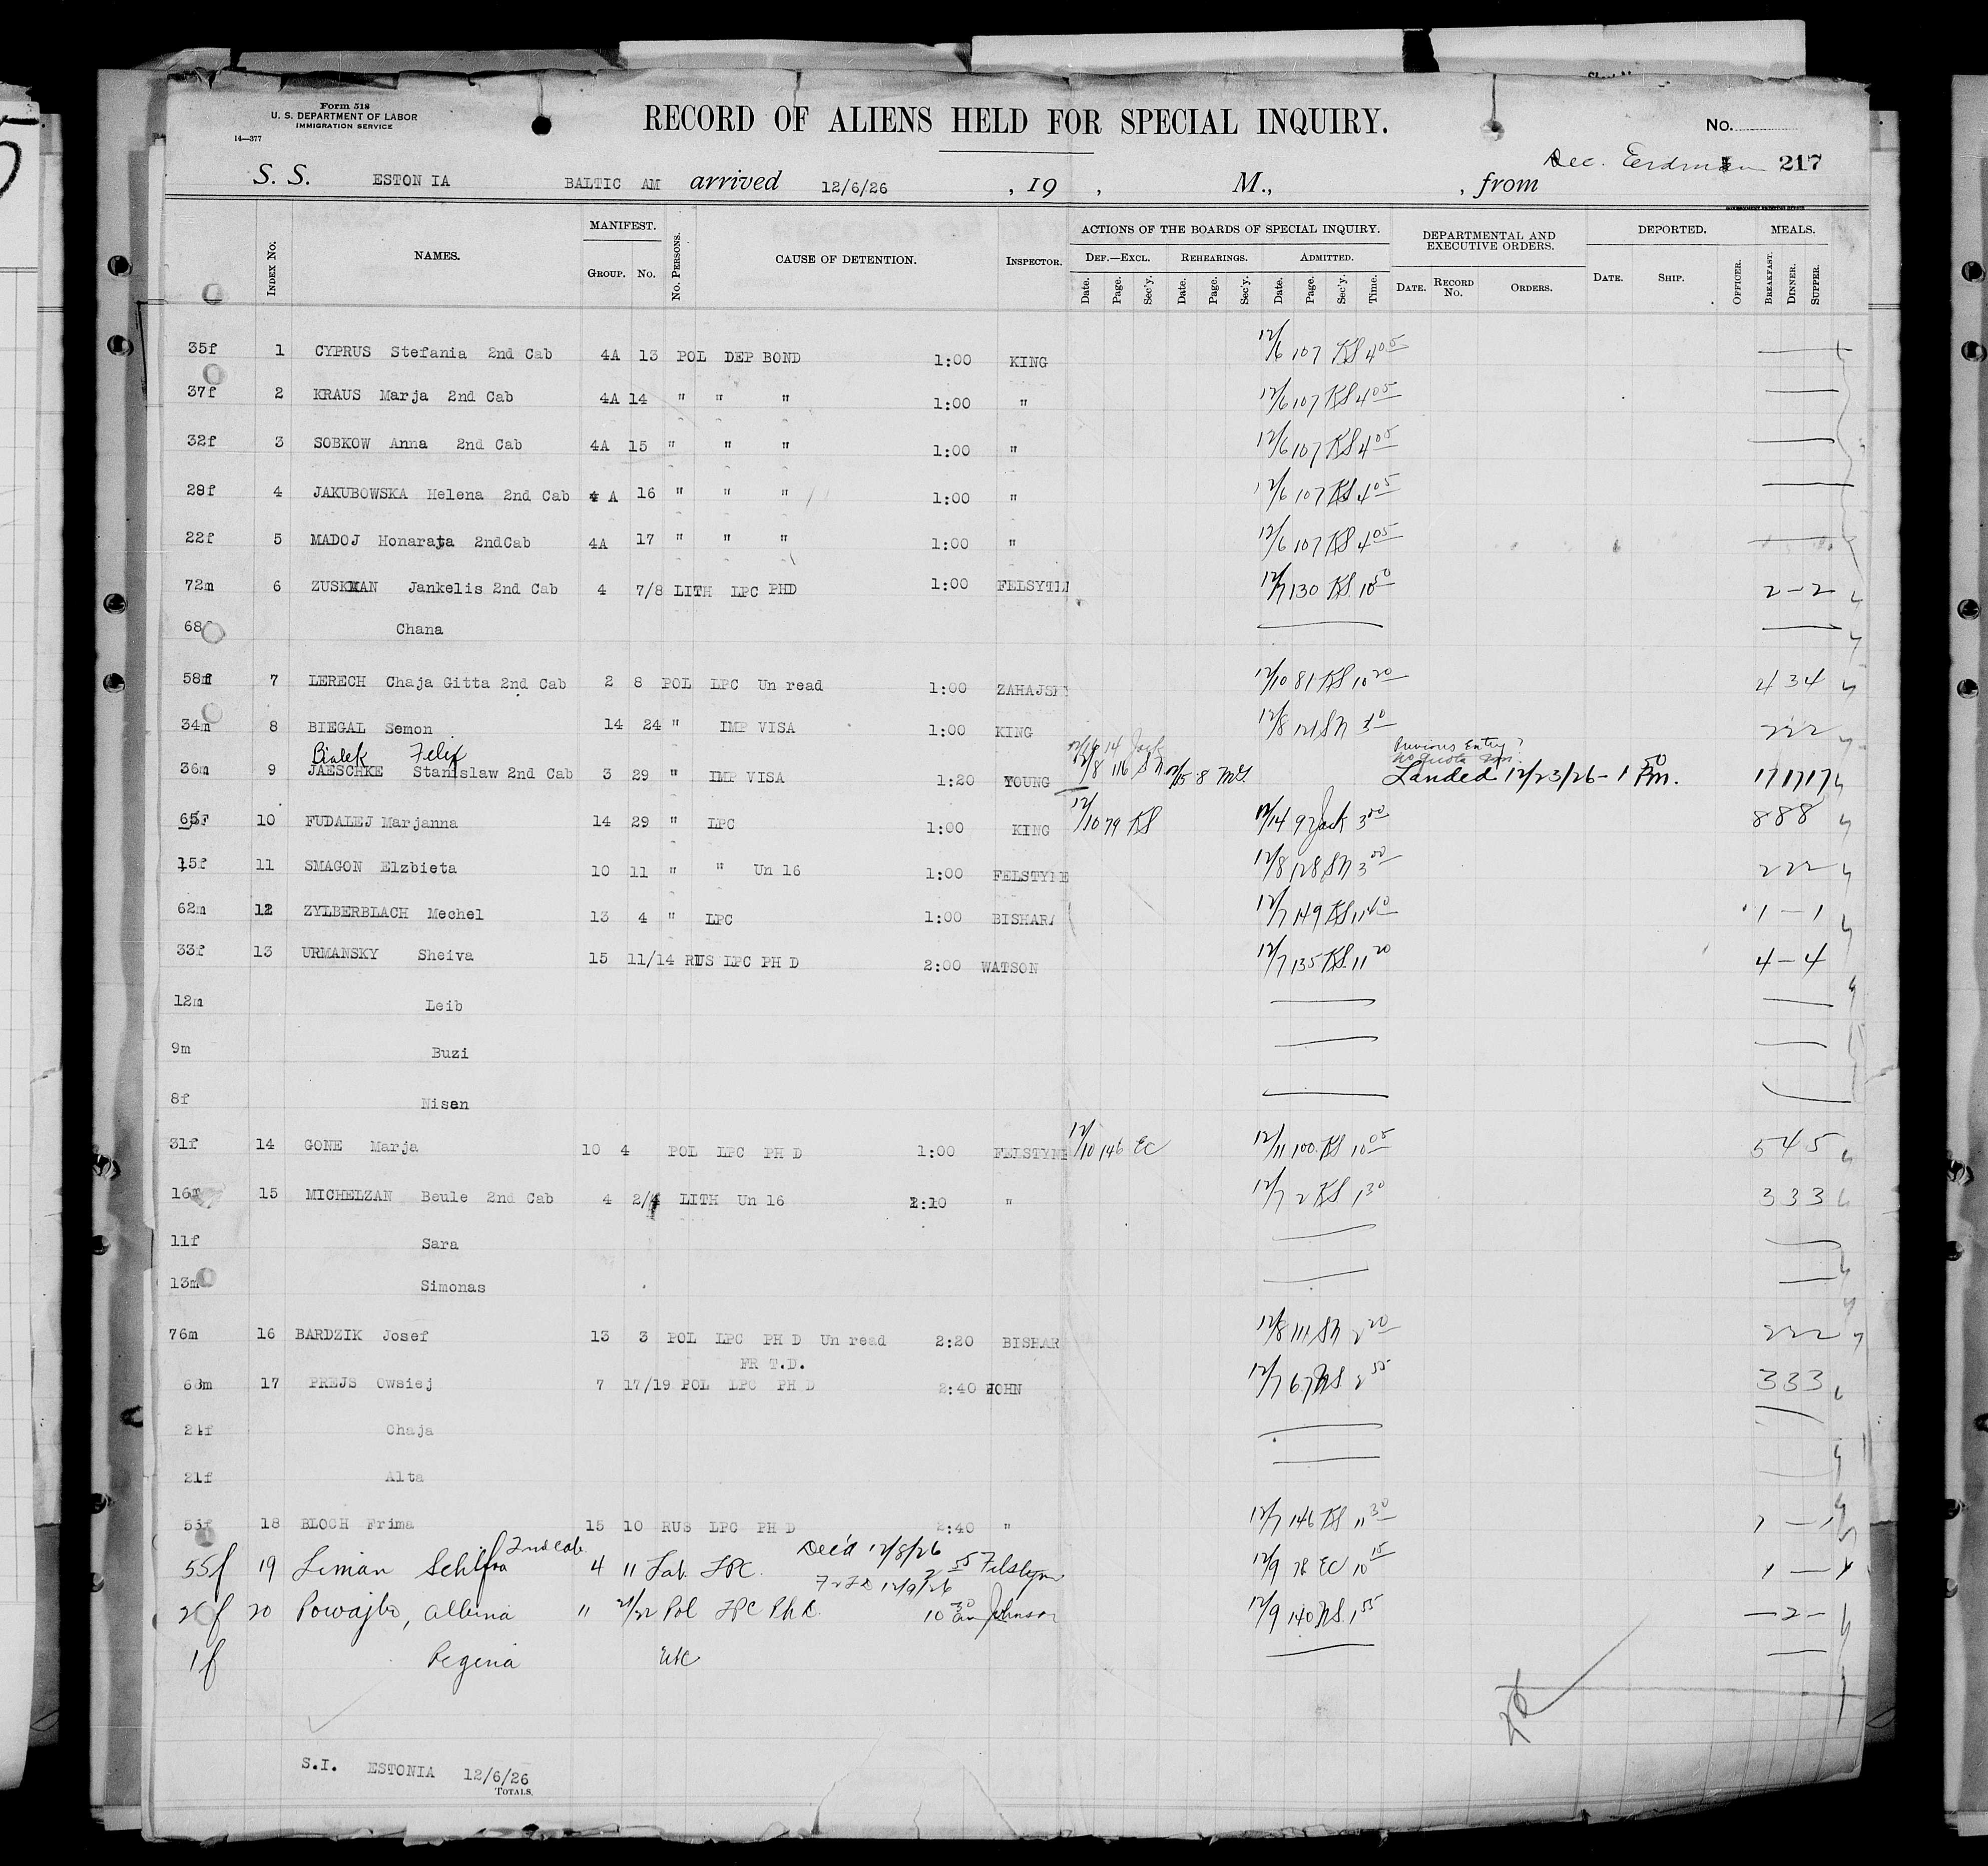 Form 518
U. S. DEPARTMENT OF LABOR
IMMIGRATION SERVICE
14—377
RECORD OF ALIENS HELD FOR SPECIAL INQUIRY.
No.
217
S. S. ESTON IA BALTIC AM arrived 12/6/26 , 19 , M., , from
Index No. NAMES. MANIFEST. Group. No. No. Persons. CAUSE OF DETENTION. Inspector. ACTIONS OF THE BOARDS OF SPECIAL INQUIRY. Def.—Excl. Date. Page. Sec'y. Rehearings. Date. Page. Sec'y. Admitted. Date. Page. Sec'y. Time. DEPARTMENTAL AND EXECUTIVE ORDERS. Date. Record No. Orders. DEPORTED. Date. Ship. Officer. MEALS. Breakfast. Dinner. Supper.
35f 1 CYPRUS Stefania 2nd Cab 4A 13 POL DEP BOND 1:00 KING 12/6 107 KS 4 05
37f 2 KRAUS Marja 2nd Cab 4A 14 " " " 1:00 " 12/6 107 KS 4 05
32f 3 SOBKOW Anna 2nd Cab 4A 15 " " " 1:00 " 12/6 107 KS 4 05
28f 4 JAKUBOWSKA Helena 2nd Cab 4 A 16 " " " 1:00 " 12/6 107 KS 4 05
22f 5 MADOJ Honarata 2ndCab 4A 17 " " " 1:00 " 12/6 107 KS 4 05
72m 6 ZUSKMAN Jankelis 2nd Cab 4 7/8 LITH LPC PHD 1:00 FELSYTIN 12/7 130 KS 10 50 2 – 2
68 Chana
58f 7 LERECH Chaja Gitta 2nd Cab 2 8 POL LPC Un read 1:00 ZAHAJSKY 12/10 81 KS 10 20 4 3 4
34m 8 BIEGAL Semon 14 24 " IMP VISA 1:00 KING 12/8 121 SN 2 2 2
Bialek Felix 12/16 14 Jack Previous Entry?
36m 9 JAESCHKE Stanislaw 2nd Cab 3 29 " IMP VISA 1:20 YOUNG 12/8 116 SN Landed 12/23/26 - 1 50 Pm. 17 17 17
65F 10 FUDALEJ Marjanna 14 29 " LPC 1:00 KING 12/10 79 KS 12/14 9 Jack 3 00 8 8 8
15f 11 SMAGON Elzbieta 10 11 " " Un 16 1:00 FELSTYNE 12/8 128 SN 3 00 2 2 2
62m 12 ZYLBERBLACH Mechel 13 4 " LPC 1:00 BISHARA 12/7 149 KS 11 40 1 – 1
33f 13 URMANSKY Sheiva 15 11/14 RUS LPC PH D 2:00 WATSON 12/7 135 KS 11 20 4 – 4
12m Leib
9m Buzi
8f Nisen
31f 14 GONE Marja 10 4 POL LPC PH D 1:00 FELSTYNE 12/10 146 EC 12/11 100 KS 10 05 5 4 5
16f 15 MICHELZAN Beule 2nd Cab 4 2/4 LITH Un 16 2:10 " 12/7 2 KS 1 30 3 3 3
11f Sara
13m Simonas
76m 16 BARDZIK Josef 13 3 POL LPC PH D Un read 2:20 BISHAR 12/8 111 SN 2 20 2 2 2
FR T.D.
68m 17 PREJS Owsiej 7 17/19 POL LPC PH D 2:40 JOHN 12/7 67 NS 2 55 3 3 3
24f Chaja
21f Alta
53f 18 BLOCH Frima 15 10 RUS LPC PH D 2:40 " 12/7 146 KS 11 30 1 – 1
2nd Cab. Dec'd 12/8/26
55f 19 Liman Schifra 4 11 LPC. Felstyne 12/9 78 EC 10 15 1 – 1
12/9/26
20 Powajbo, Albina 11 21/22 Pol LPC Ph D. 10 30 am Johnson 12/9 140 NS 1 55 – 2 –
1f Regina USC
S.I. ESTONIA 12/6/26
Totals.